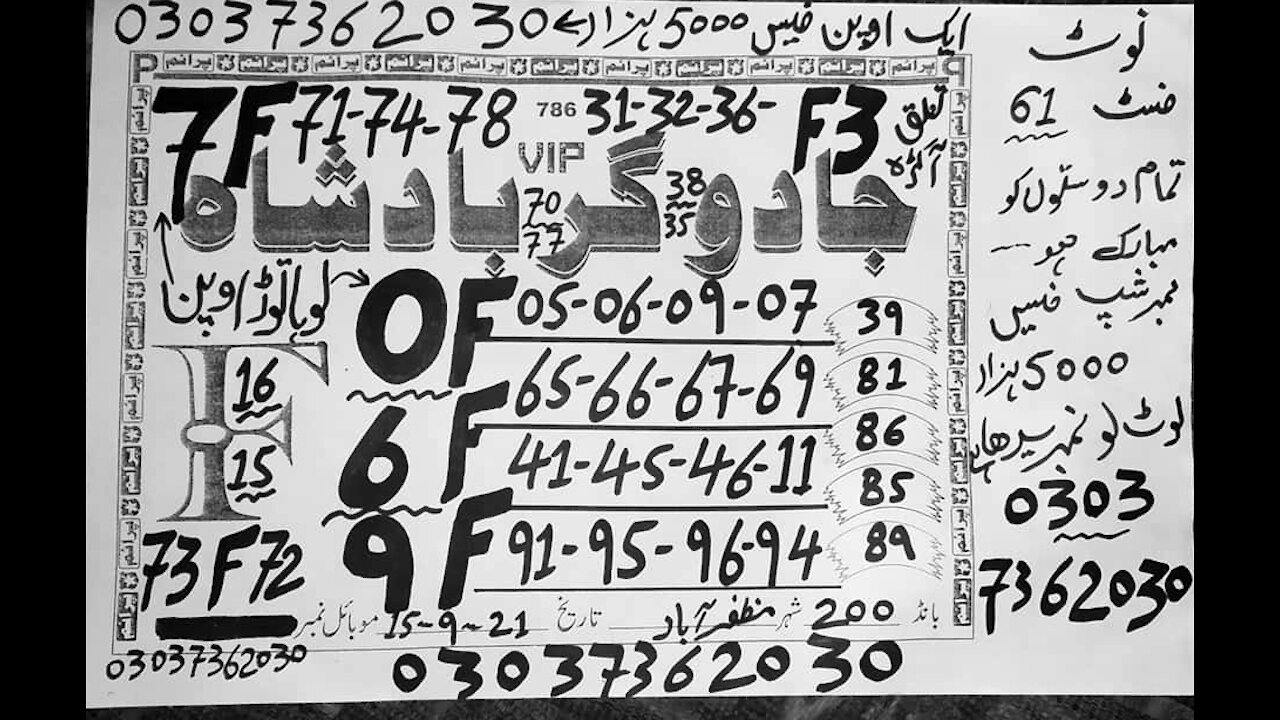 ایک اوپن فیس 5000 ہزار ← 03037362030
پرائم پرائم پرائم پرائم پرائم پرائم پرائم پرائم پرائم پرائم پرائم
7F 71-74-78 786 31-32-36- F3
تعلق آکڑہ
VIP
جادوگر بادشاہ
38
35
70
77
اوپن
0F 05-06-09-07 39
65-66-67-69 81
6F 41-45-46-11 86
85
9F 91-95-96-94 89
F
16
15
73 F 72
بانڈ 200 شہر مظفرآباد تاریخ 15-9-21 موبائل نمبر
03037362030
03037362030
نوٹ
فسٹ 61
تمام دوستوں کو
مبارک ہو --
ممبر شپ فیس
5000 ہزار
نوٹ لو نمبر
0303
7362030